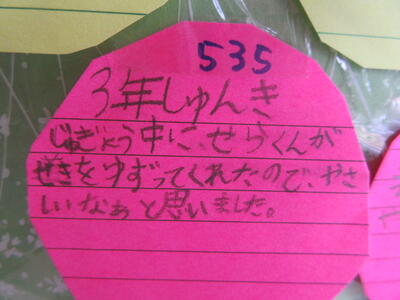 535
3年しゅんき
じゅぎょう中に、せらくんが
せきをゆずってくれたので、やさ
しいなぁと思いました。